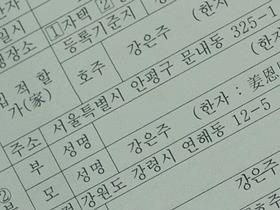 일시
장소
① 자택 ②
등록기준지
강은주
(한자
적할
가(家)
호주
서울특별시 안평구 문내동 325-1
주소
부 성명
강은주
(한자 : 姜恩
모 성명
강원도 강령시 연해동 12-5
강은주
(한자
②